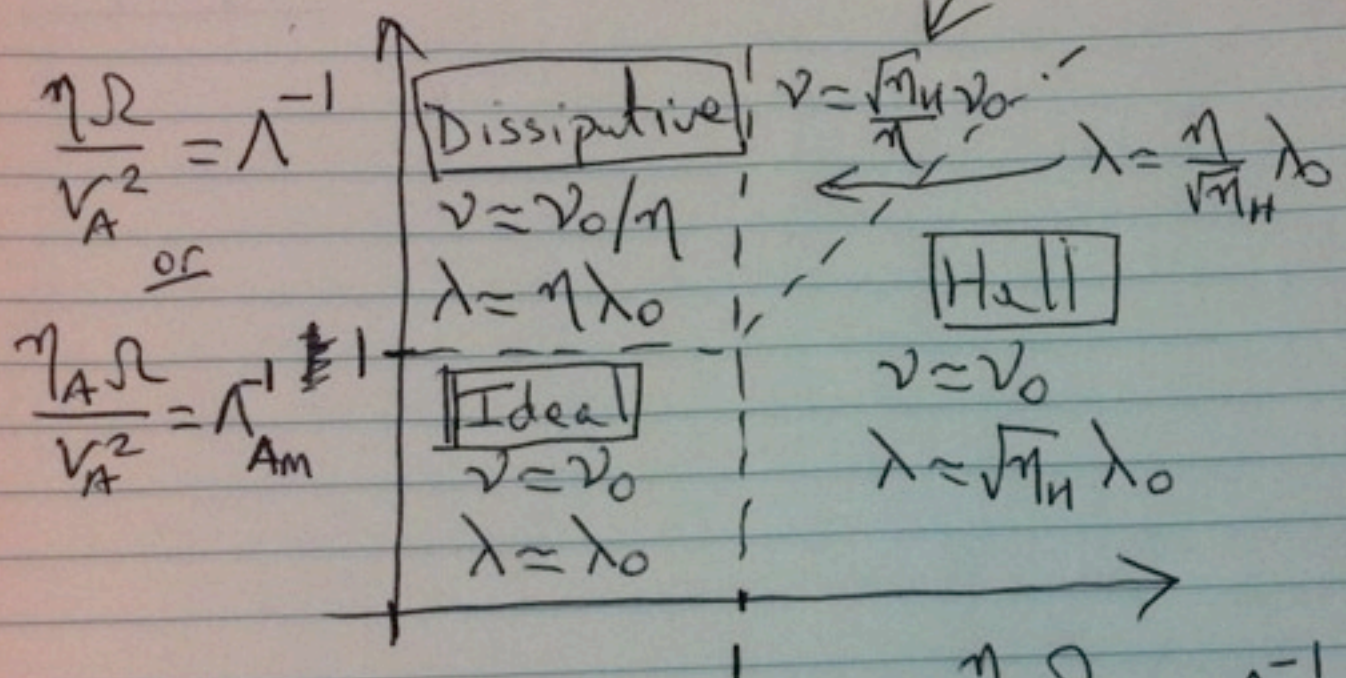 ηΩ/V_A² = Λ⁻¹
or
η_AΩ/V_A² = Λ⁻¹_Am
1
Dissipative
ν≃ν₀/η
λ≃ηλ₀
Ideal
ν≃ν₀
λ≃λ₀
ν≃√η_H/η ν₀
λ≃η/√η_H λ₀
Hall
ν≃ν₀
λ≃√η_H λ₀
1